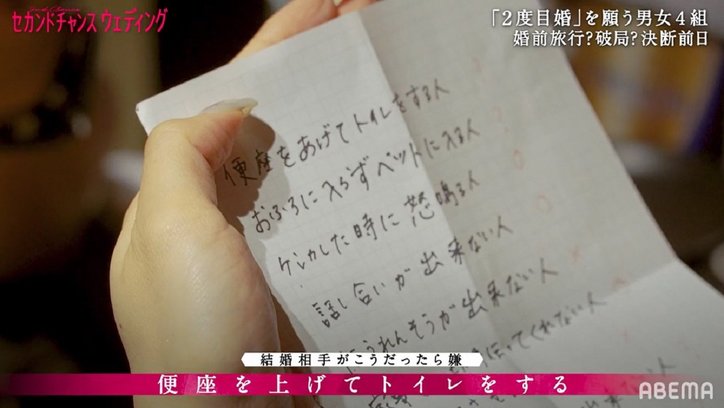 セカンドチャンス ウェディング
「2度目婚」を願う男女4組
婚前旅行?破局?決断前日
便座をあげてトイレをする人
おふろに入らずベットに入る人
ケンカした時に怒鳴る人
話し合いが出来ない人
うれんそうが出来ない人
ってくれない人
結婚相手がこうだったら嫌
便座を上げてトイレをする
ABEMA